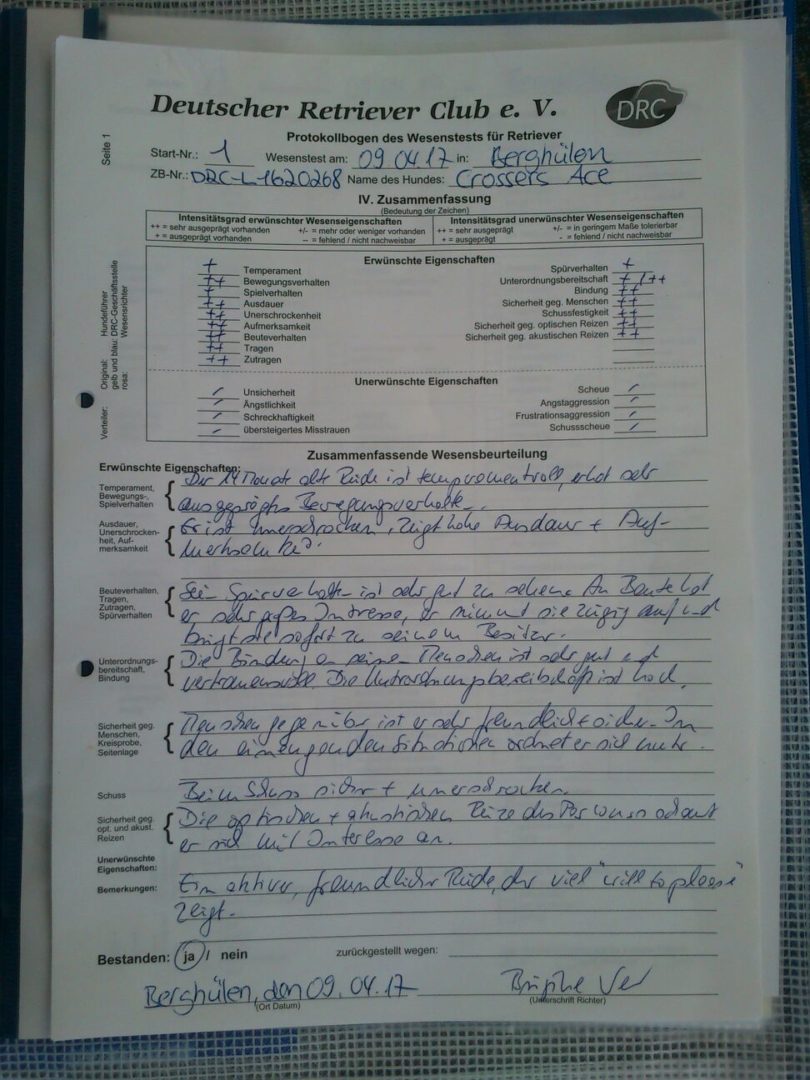 Deutscher Retriever Club e. V.
DRC
Protokollbogen des Wesenstests für Retriever
Seite 1
Start-Nr.: 1 Wesenstest am: 09.04.17 in: Berghülen
ZB-Nr.: DRC-L 1620268 Name des Hundes: Crossers Ace
IV. Zusammenfassung
(Bedeutung der Zeichen)
Intensitätsgrad erwünschter Wesenseigenschaften
++ = sehr ausgeprägt vorhanden +/- = mehr oder weniger vorhanden
+ = ausgeprägt vorhanden -- = fehlend / nicht nachweisbar
Intensitätsgrad unerwünschter Wesenseigenschaften
++ = sehr ausgeprägt +/- = in geringem Maße tolerierbar
+ = ausgeprägt - = fehlend / nicht nachweisbar
Verteiler: Original: Hundeführer
gelb und blau: DRC-Geschäftsstelle
rosa: Wesensrichter
Erwünschte Eigenschaften
+ Temperament
++ Bewegungsverhalten
++ Spielverhalten
++ Ausdauer
++ Unerschrockenheit
++ Aufmerksamkeit
++ Beuteverhalten
++ Tragen
++ Zutragen
Spürverhalten +
Unterordnungsbereitschaft + / ++
Bindung ++
Sicherheit geg. Menschen ++
Schussfestigkeit ++
Sicherheit geg. optischen Reizen ++
Sicherheit geg. akustischen Reizen ++
Unerwünschte Eigenschaften
Unsicherheit
Ängstlichkeit
Schreckhaftigkeit
übersteigertes Misstrauen
Scheue
Angstaggression
Frustrationsaggression
Schussscheue
Zusammenfassende Wesensbeurteilung
Erwünschte Eigenschaften:
Temperament,
Bewegungs-,
Spielverhalten
Der 14 Monate alte Rüde ist temperamentvoll, sehr
ausgeprägtes Bewegungsverhalten.
Ausdauer,
Unerschrocken-
heit, Auf-
merksamkeit
Er ist unerschrocken, zeigt hohe Ausdauer + Auf-
merksamkeit.
Beuteverhalten,
Tragen,
Zutragen,
Spürverhalten
Sein Spürverhalten ist sehr gut zu sehen. An Beute hat
er sehr großes Interesse, er nimmt sie zügig auf und
bringt sie sofort zu seinem Besitzer.
Unterordnungs-
bereitschaft,
Bindung
Die Bindung an seine Menschen ist sehr gut und
vertrauensvoll. Die Unterordnungsbereitschaft ist hoch.
Sicherheit geg.
Menschen,
Kreisprobe,
Seitenlage
Menschen gegenüber ist er sehr freundlich + sicher. In
den einengenden Situationen ordnet er sich unter.
Schuss
Beim Schuss sicher + unerschrocken.
Sicherheit geg.
opt. und akust.
Reizen
Die optischen + akustischen Reize des Parcours schaut
er sich mit Interesse an.
Unerwünschte
Eigenschaften:
Bemerkungen:
Ein aktiver, freundlicher Rüde, der viel "will to please"
zeigt.
Bestanden: ja / nein zurückgestellt wegen:
Berghülen, den 09.04.17
(Ort Datum) (Unterschrift Richter)